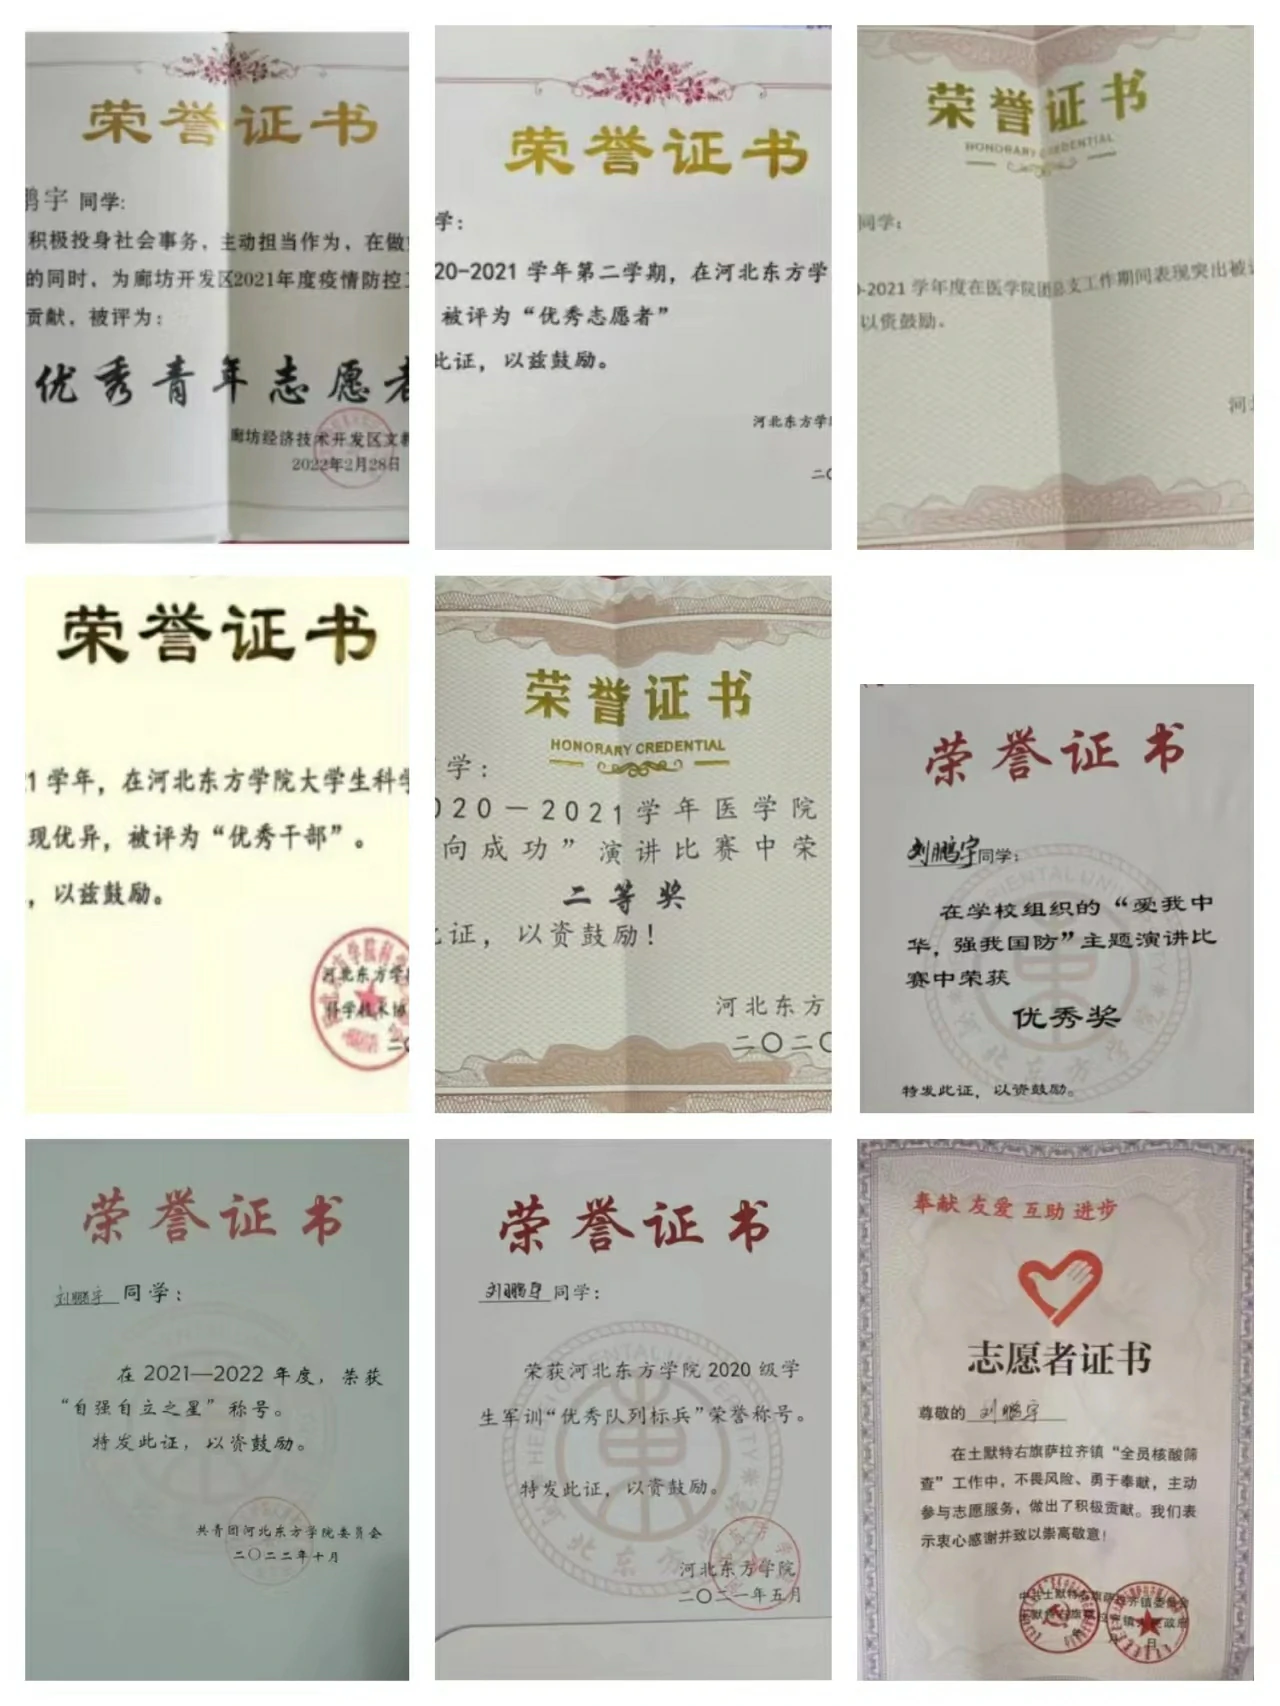 荣誉证书
鹏宇 同学:
积极投身社会事务，主动担当作为，在做
的同时，为廊坊开发区2021年度疫情防控
贡献，被评为:
优秀青年志愿者
廊坊经济技术开发区文教
2022年2月28日
荣誉证书
学:
20-2021 学年第二学期，在河北东方学
被评为“优秀志愿者”
此证，以兹鼓励。
河北东方学
二〇
荣誉证书
HONORARY CREDENTIAL
同学:
-2021 学年度在医学院团总支工作期间表现突出被
以资鼓励。
河
荣誉证书
1 学年，在河北东方学院大学生科学
现优异，被评为“优秀干部”。
，以兹鼓励。
河北东方学
科学技术协
二〇
荣誉证书
HONORARY CREDENTIAL
学:
020—2021学年医学院
向成功”演讲比赛中荣
二等奖
证，以资鼓励!
河北东方
二〇二〇
荣誉证书
刘鹏宇同学:
在学校组织的“爱我中
华，强我国防”主题演讲比
赛中荣获
优秀奖
特发此证，以资鼓励。
荣誉证书
刘鹏宇 同学:
在 2021—2022 年度，荣获
“自强自立之星”称号。
特发此证，以资鼓励。
共青团河北东方学院委员会
二〇二二年十月
荣誉证书
刘鹏宇 同学:
荣获河北东方学院 2020 级学
生军训“优秀队列标兵”荣誉称号。
特发此证，以资鼓励。
河北东方学院
二〇二一年五月
奉献 友爱 互助 进步
志愿者证书
尊敬的 刘鹏宇
在土默特右旗萨拉齐镇“全员核酸筛
查”工作中，不畏风险、勇于奉献，主动
参与志愿服务，做出了积极贡献。我们表
示衷心感谢并致以崇高敬意!
中共土默特右旗萨拉齐镇委员会